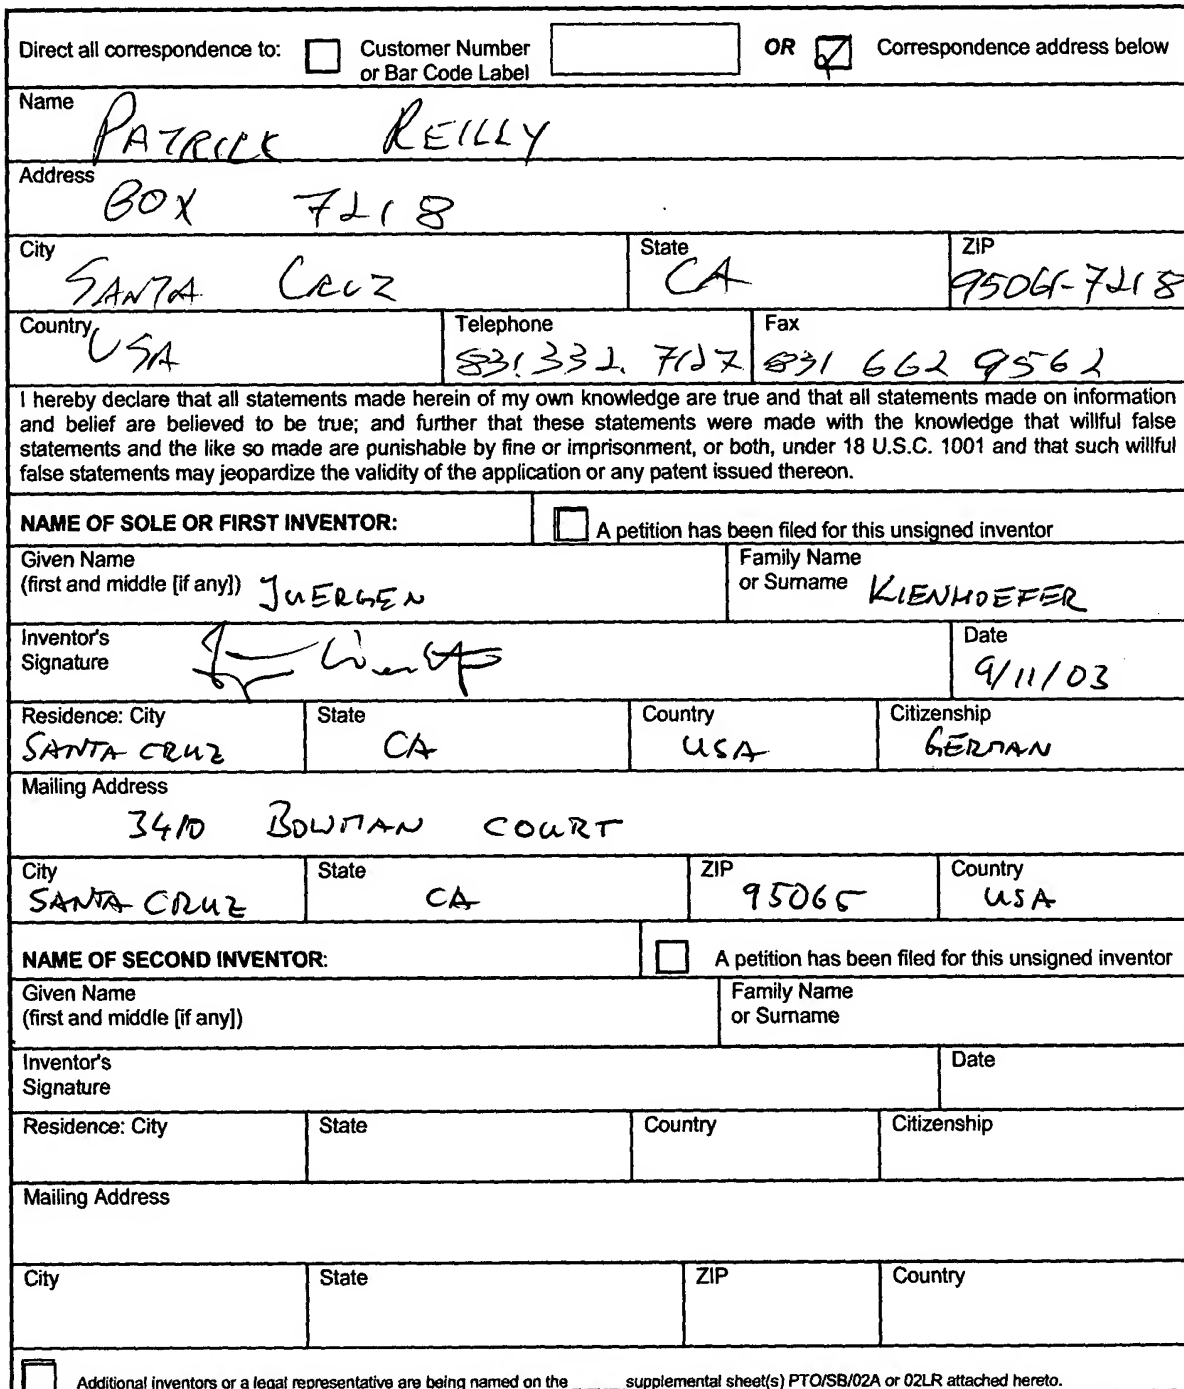 Direct all correspondence to: Customer Number or Bar Code Label OR Correspondence address below
Name
PATRICK REILLY
Address
BOX 7218
City State ZIP
SANTA CRUZ CA 95061-7218
Country Telephone Fax
USA 831.332.7127 831 662 9562
I hereby declare that all statements made herein of my own knowledge are true and that all statements made on information
and belief are believed to be true; and further that these statements were made with the knowledge that willful false
statements and the like so made are punishable by fine or imprisonment, or both, under 18 U.S.C. 1001 and that such willful
false statements may jeopardize the validity of the application or any patent issued thereon.
NAME OF SOLE OR FIRST INVENTOR: A petition has been filed for this unsigned inventor
Given Name Family Name
(first and middle [if any]) JUERGEN or Surname KIENHOEFER
Inventor's Date
Signature 9/11/03
Residence: City State Country Citizenship
SANTA CRUZ CA USA GERMAN
Mailing Address
3410 BOWMAN COURT
City State ZIP Country
SANTA CRUZ CA 95065 USA
NAME OF SECOND INVENTOR: A petition has been filed for this unsigned inventor
Given Name Family Name
(first and middle [if any]) or Surname
Inventor's Date
Signature
Residence: City State Country Citizenship
Mailing Address
City State ZIP Country
Additional inventors or a legal representative are being named on the _____ supplemental sheet(s) PTO/SB/02A or 02LR attached hereto.